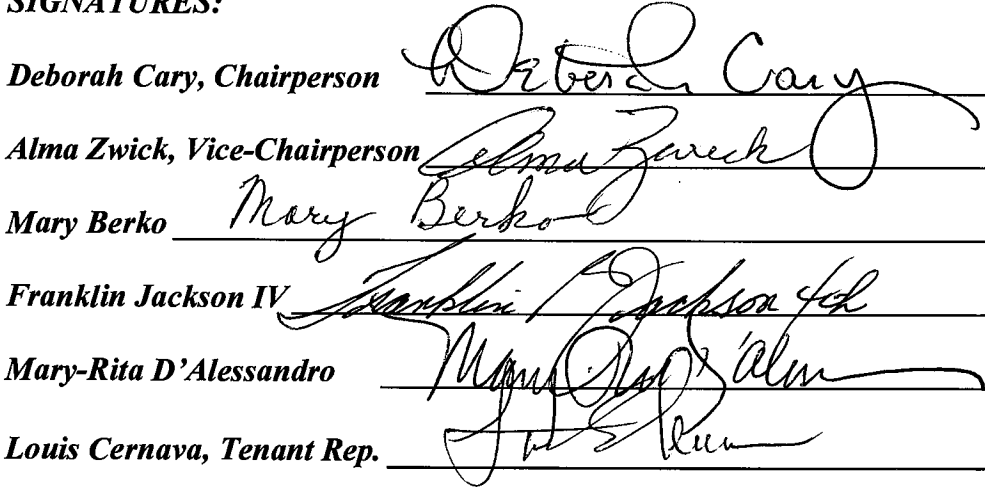 SIGNATURES:
Deborah Cary, Chairperson Deborah Cary
Alma Zwick, Vice-Chairperson Alma Zwick
Mary Berko Mary Berko
Franklin Jackson IV Franklin Jackson 4th
Mary-Rita D'Alessandro
Louis Cernava, Tenant Rep.